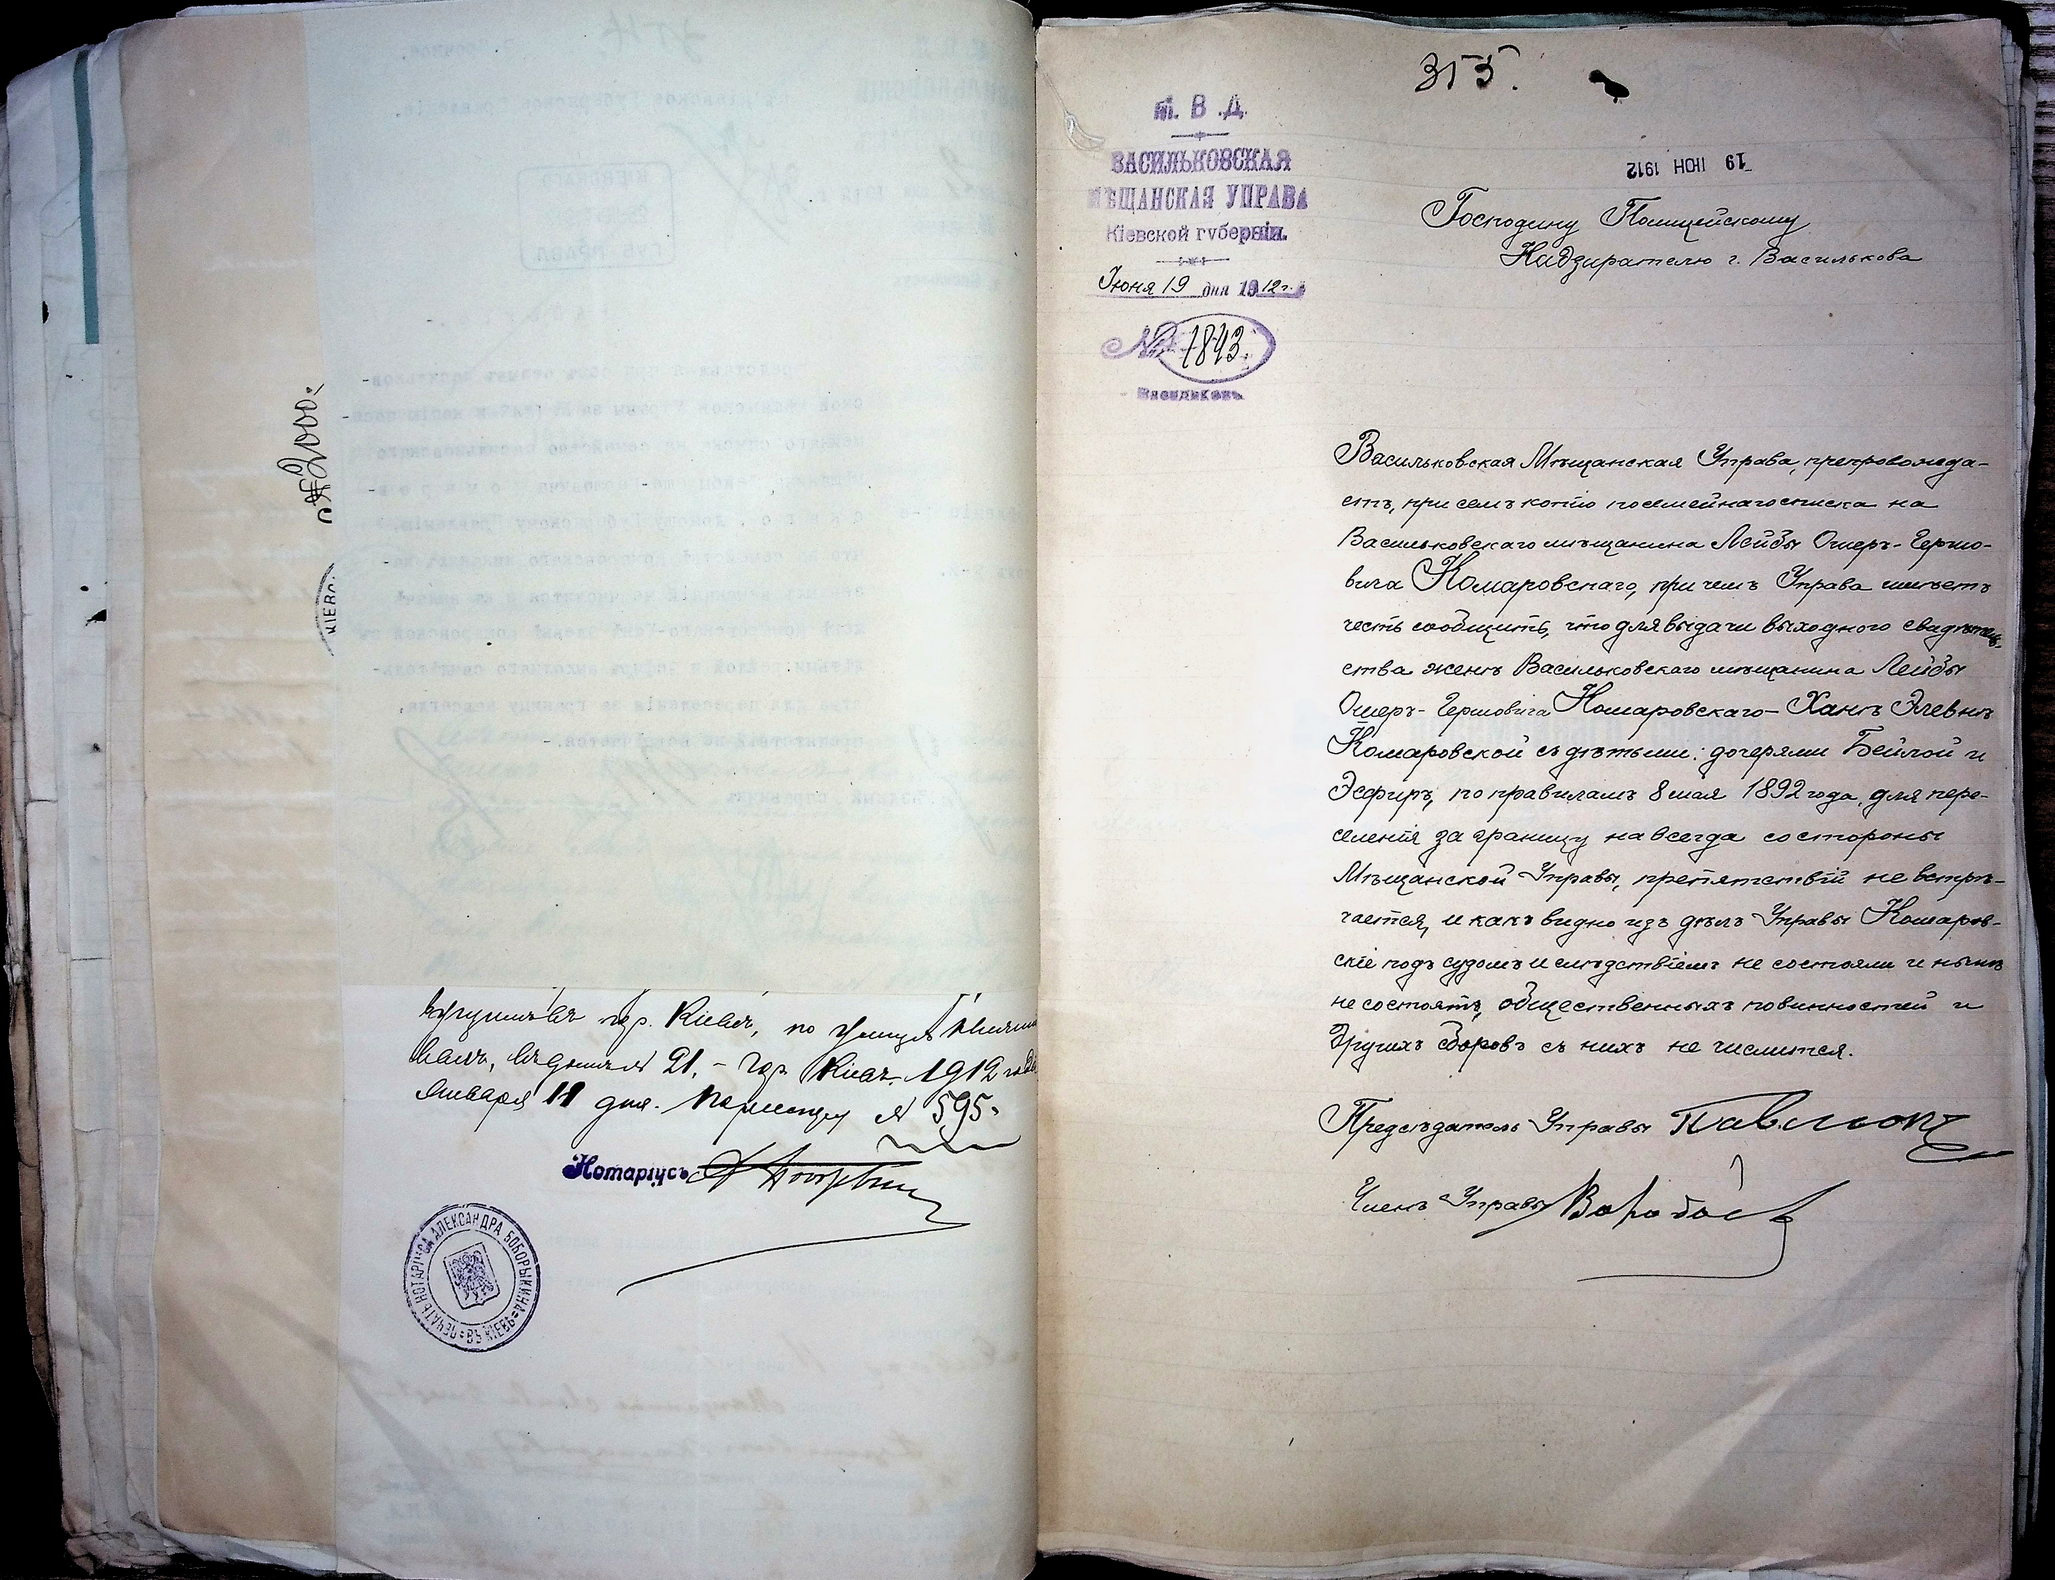 № 2000.
КІЕВО
гор. Кіевѣ, по улицѣ
въ домѣ № 21. – Гор. Кіевъ. 1912 года
Января 11 дня. По реестру № 595.
Нотаріусъ
ПЕЧАТЬ НОТАРІУСА АЛЕКСАНДРА БОБОРЫКИНА ВЪ КІЕВѢ
355.
М. В. Д.
ВАСИЛЬКОВСКАЯ
МѢЩАНСКАЯ УПРАВА
Кіевской губерніи.
Іюня 19 дня 1912 г.
№ 1843.
Васильковъ
19 ІЮН 1912
Господину Полицейскому
Надзирателю г. Василькова
Васильковская Мѣщанская Управа, препровожда-
етъ, при семъ копію посемейнаго списка на
Васильковскаго мѣщанина Лейбы Ошеръ-Гершо-
вича Комаровскаго, при чемъ Управа имѣетъ
честь сообщить, что для выдачи выходного свидѣтель-
ства женѣ Васильковскаго мѣщанина Лейбы
Ошеръ-Гершовича Комаровскаго – Ханѣ Элевнѣ
Комаровской съ дѣтьми: дочерями Бейлой и
Эсфирь, по правиламъ 8 мая 1892 года, для пере-
селенія за границу навсегда со стороны
Мѣщанской Управы, препятствій не встрѣ-
чается, и какъ видно изъ дѣлъ Управы Комаров-
скіе подъ судомъ и слѣдствіемъ не состояли и нынѣ
не состоятъ, общественныхъ повинностей и
другихъ сборовъ съ нихъ не числится.
Предсѣдатель Управы
Членъ Управы Воробьевъ